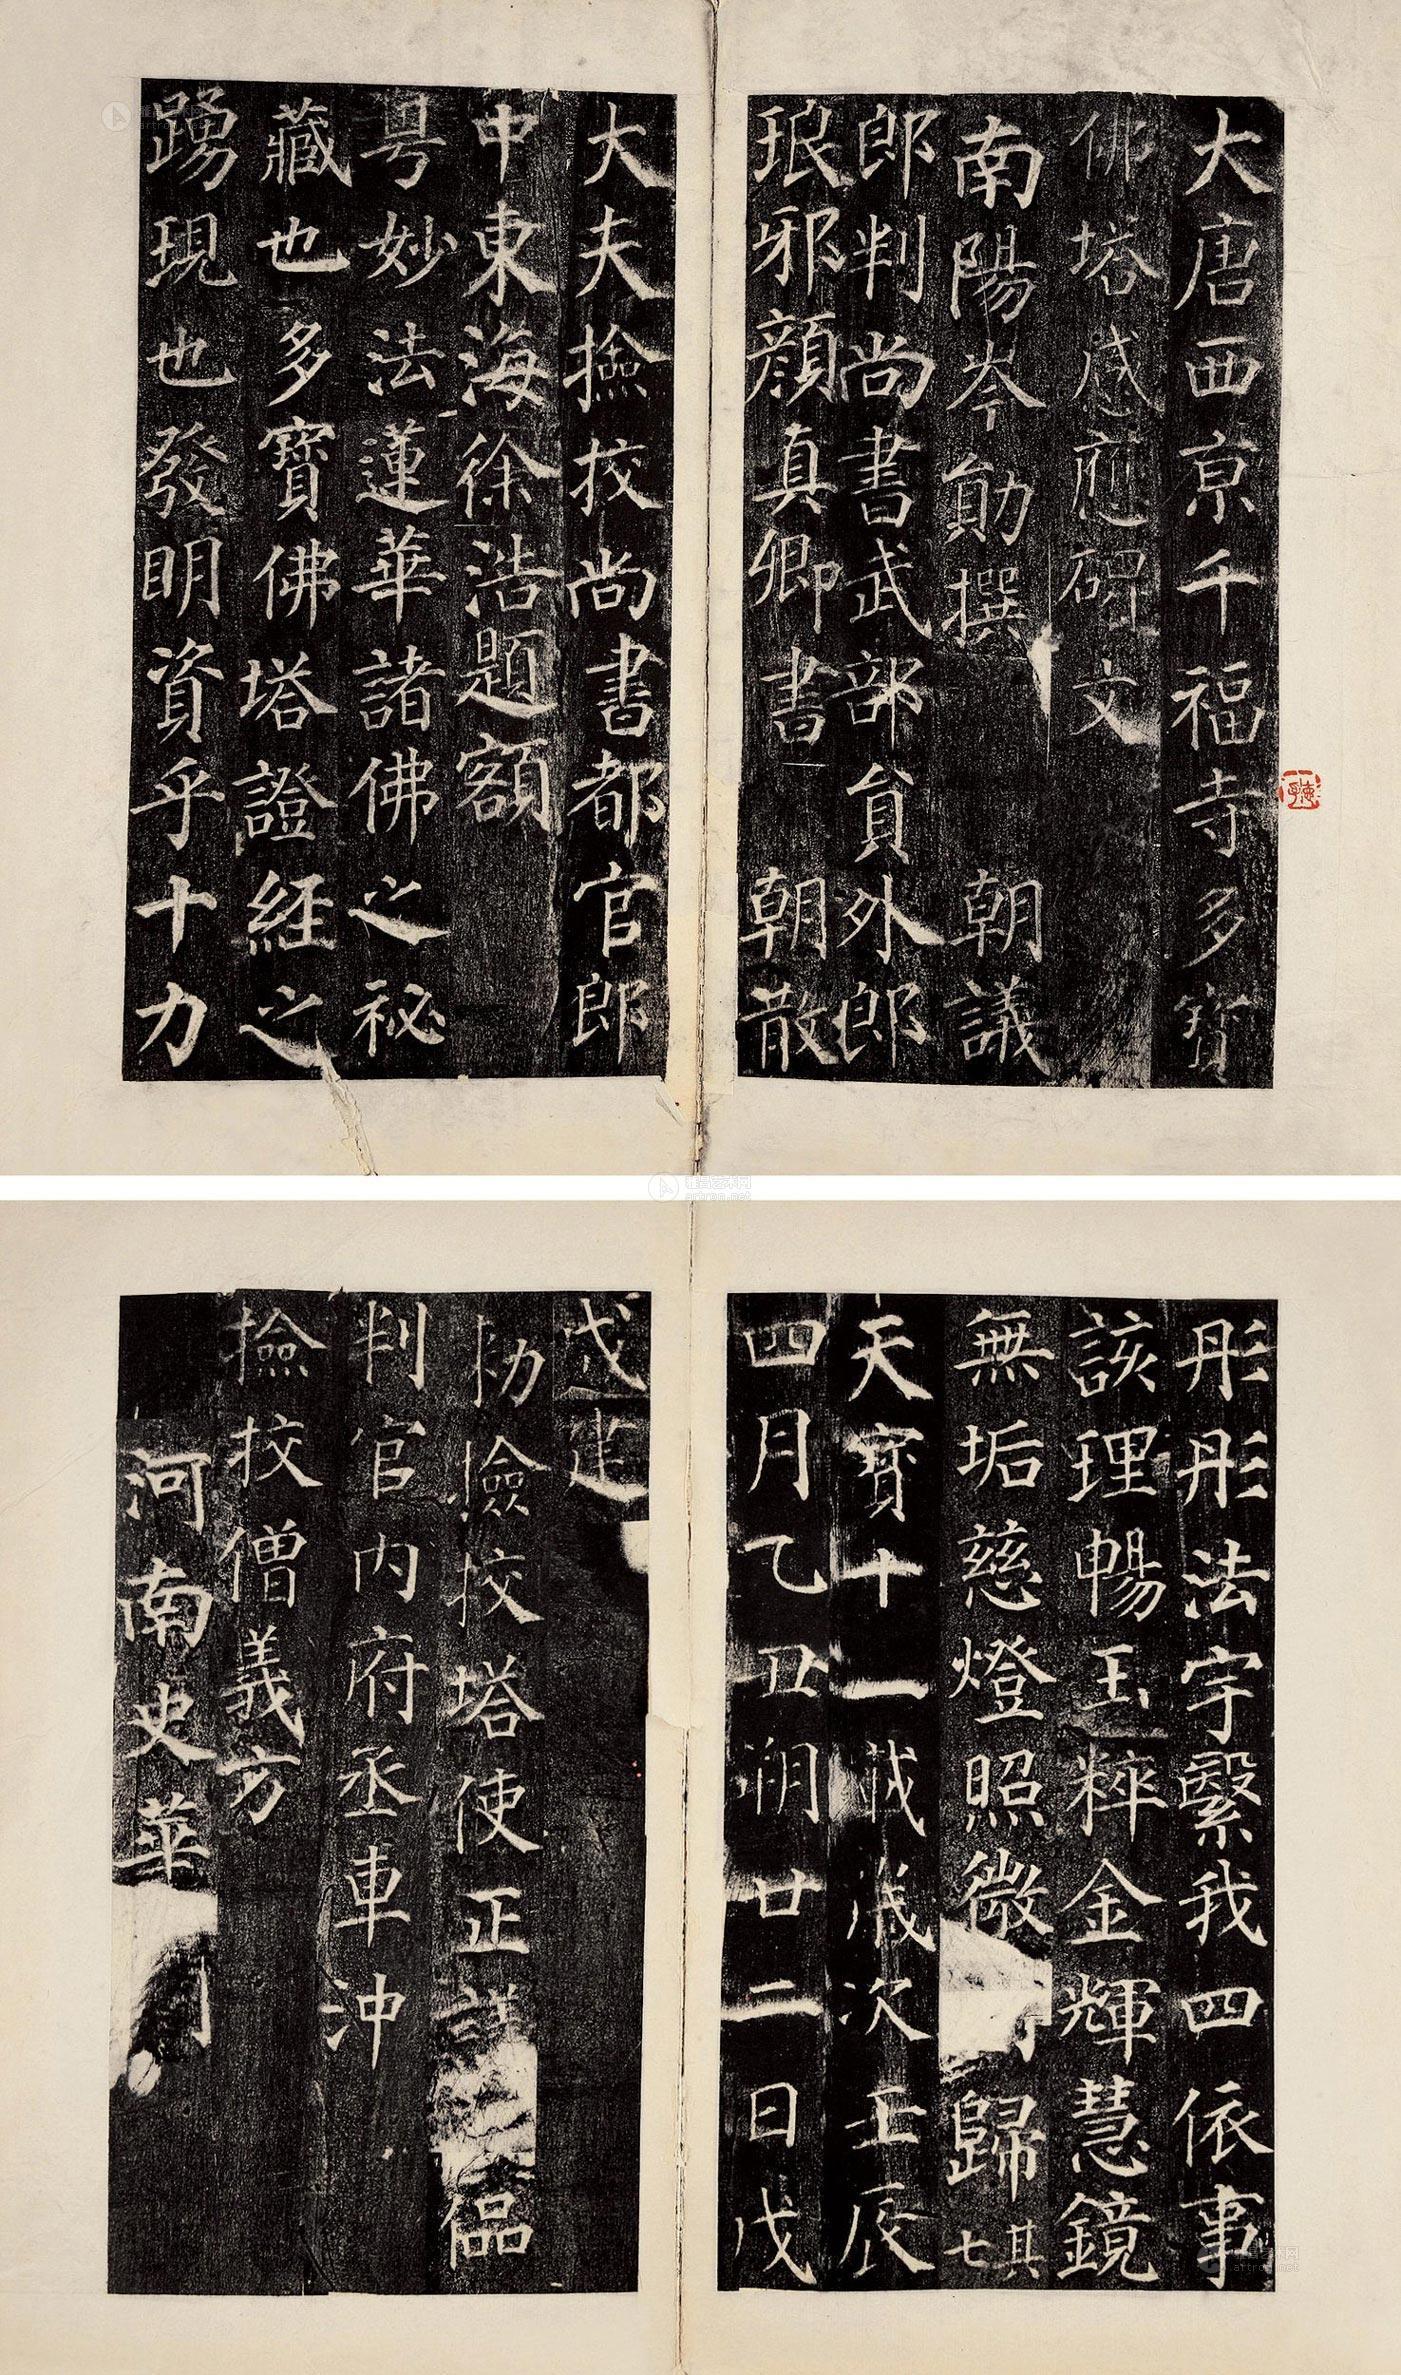 大唐西京千福寺多寶
佛塔感應碑文
南陽岑勛撰 朝議
郎判尚書武部員外郎
琅邪顏真卿書 朝散
大夫撿挍尚書都官郎
中東海徐浩題額
粵妙法蓮華諸佛之祕
藏也多寶佛塔證經之
踴現也發明資乎十力
彤彤法宇繄我四依事
該理暢玉粹金輝慧鏡
無垢慈燈照微 歸其七
天寶十一載歲次壬辰
四月乙丑朔廿二日戊
戌建
勑撿挍塔使正議
判官內府丞車沖
撿挍僧義方
河南史華
雅昌艺术网
artron.net